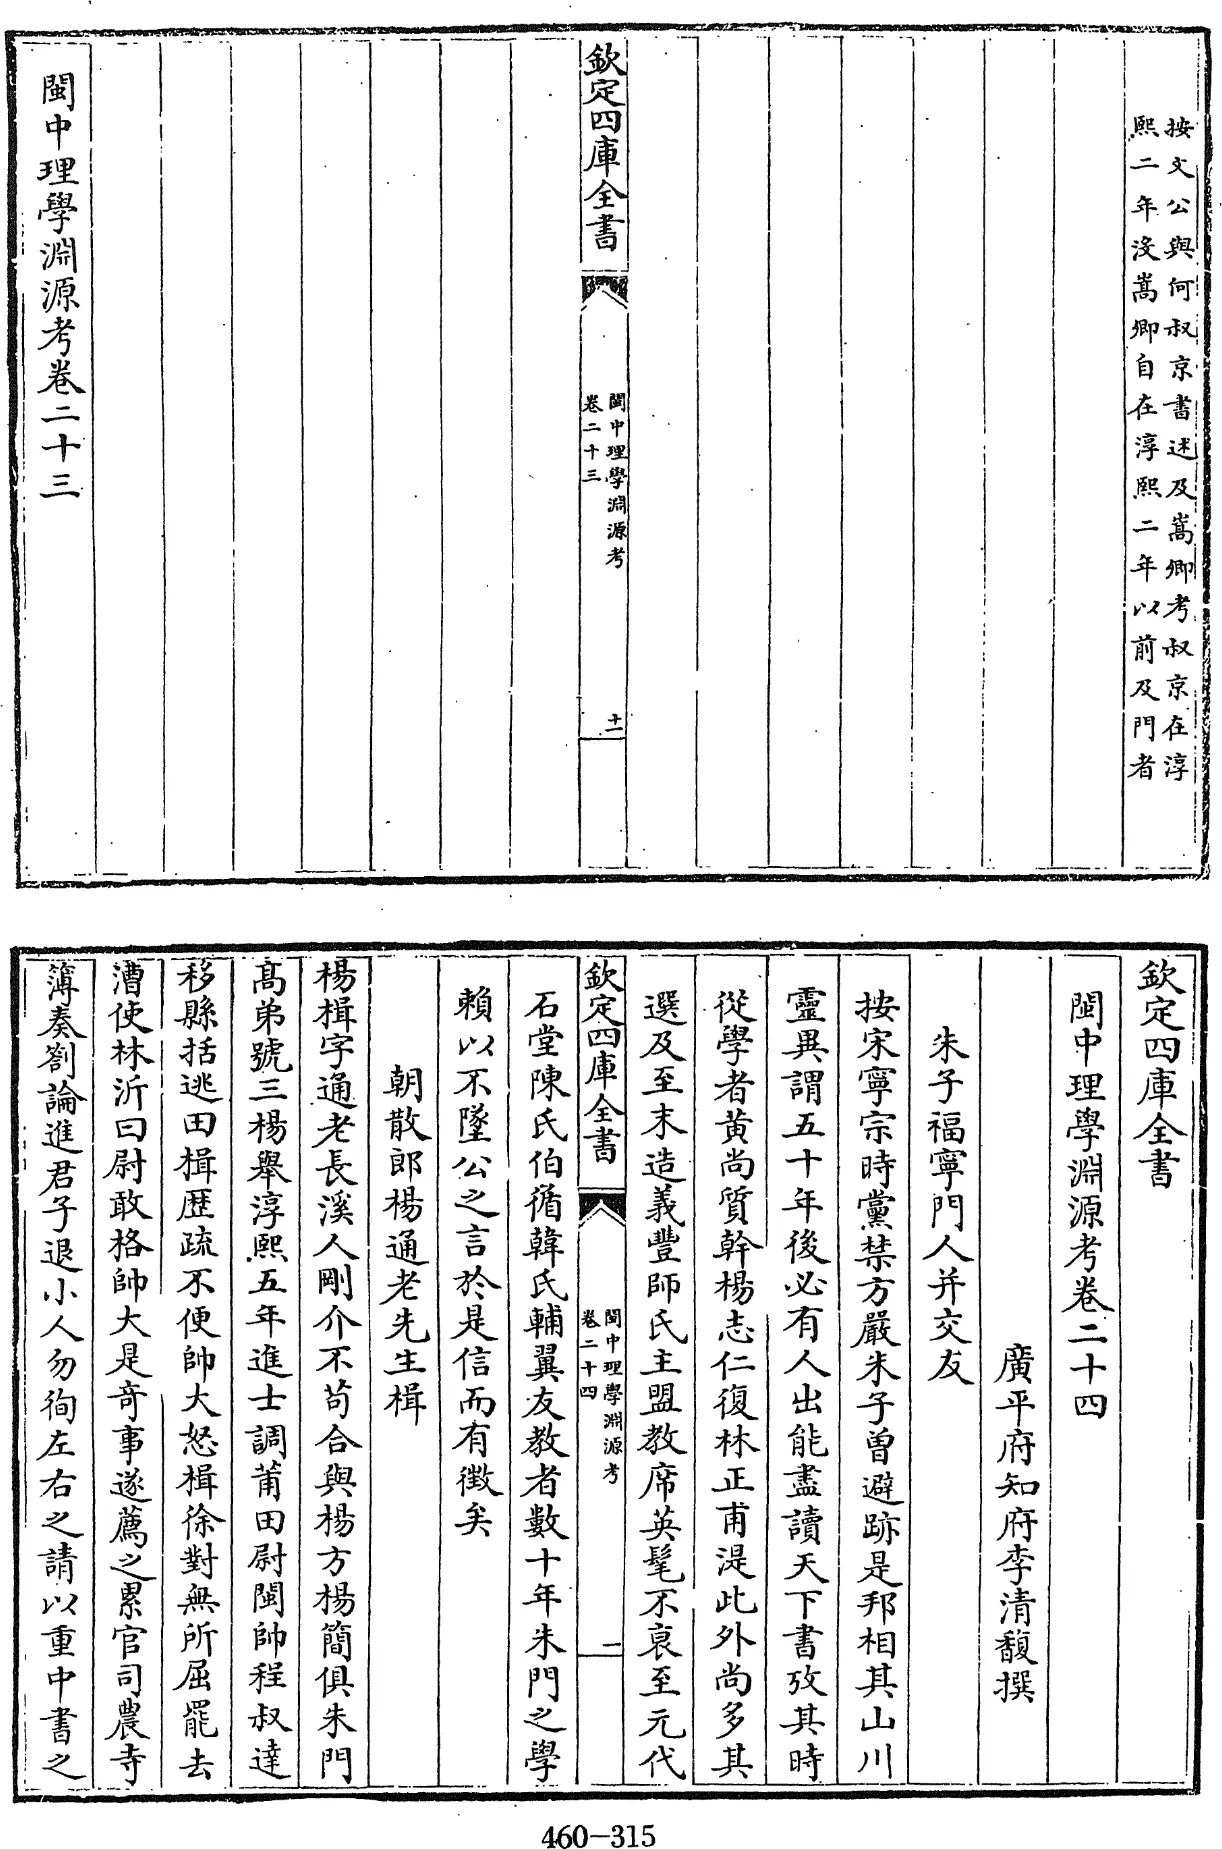 按文公與何叔京書述及嵩卿考叔京在淳
熙二年沒嵩卿自在淳熙二年以前及門者
欽定四庫全書
閩中理學淵源考
卷二十三
十一
閩中理學淵源考卷二十三
欽定四庫全書
閩中理學淵源考卷二十四
廣平府知府李清馥撰
朱子福寧門人并交友
按宋寧宗時黨禁方嚴朱子曾避跡是邦相其山川
靈異謂五十年後必有人出能盡讀天下書攷其時
從學者黄尚質幹楊志仁復林正甫湜此外尚多其
選及至末造義豐師氏主盟教席英髦不衰至元代
欽定四庫全書
閩中理學淵源考
卷二十四
一
石堂陳氏伯循韓氏輔翼友教者數十年朱門之學
賴以不墜公之言於是信而有徴矣
朝散郎楊通老先生楫
楊楫字通老長溪人剛介不苟合與楊方楊簡俱朱門
髙弟號三楊舉淳熙五年進士調莆田尉閩帥程叔達
移縣括逃田楫歴疏不便帥大怒楫徐對無所屈罷去
漕使林沂曰尉敢格帥大是竒事遂薦之累官司農寺
簿奏劄論進君子退小人勿徇左右之請以重中書之
460-315